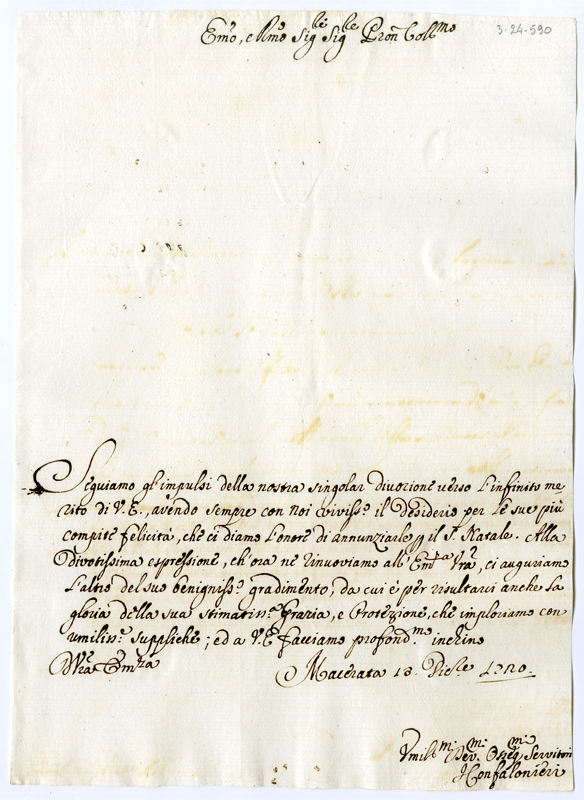 3-24-590
Emo, e Rmo Sig.re Sig.re Pron Col.mo
Seguiamo gl'impulsi della nostra singolar divozione verso l'infinito me-
rito di V. E., avendo sempre con noi viviss.o il desiderio per le sue più
compite felicità, che ci diamo l'onore di annunziarle p il S. Natale. Alla
divotissima espressione, ch'ora ne rinuoviamo all' Em.za Vra, ci auguriamo
l'altro del suo benigniss.o gradimento; da cui è per risultarci anche la
gloria della sua stimatiss.a Grazia, e Protezione, che imploriamo con
umiliss.e suppliche; ed a V. E. facciamo profond.mo inchino
Vra Em.za
Macerata 18 Dicbre 1720.
Umil.mi Dev.mi Osseq.mi Servitori
I Confalonieri